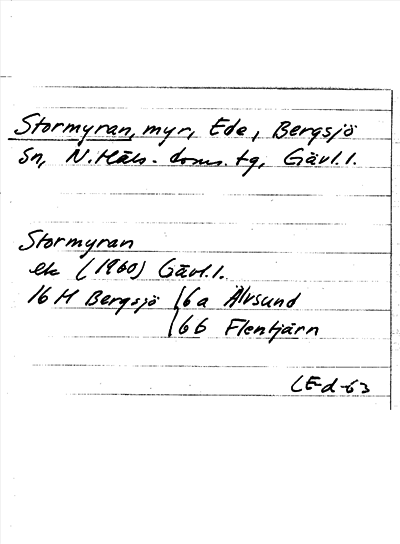 Stormyran, myr, Ede, Bergsjö
Sn, N. Häls. doms. tg, Gävl. l.
Stormyran
ek (1960) Gävl. l.
16 H Bergsjö 6a Älvsund
6b Flentjärn
LE-d -63